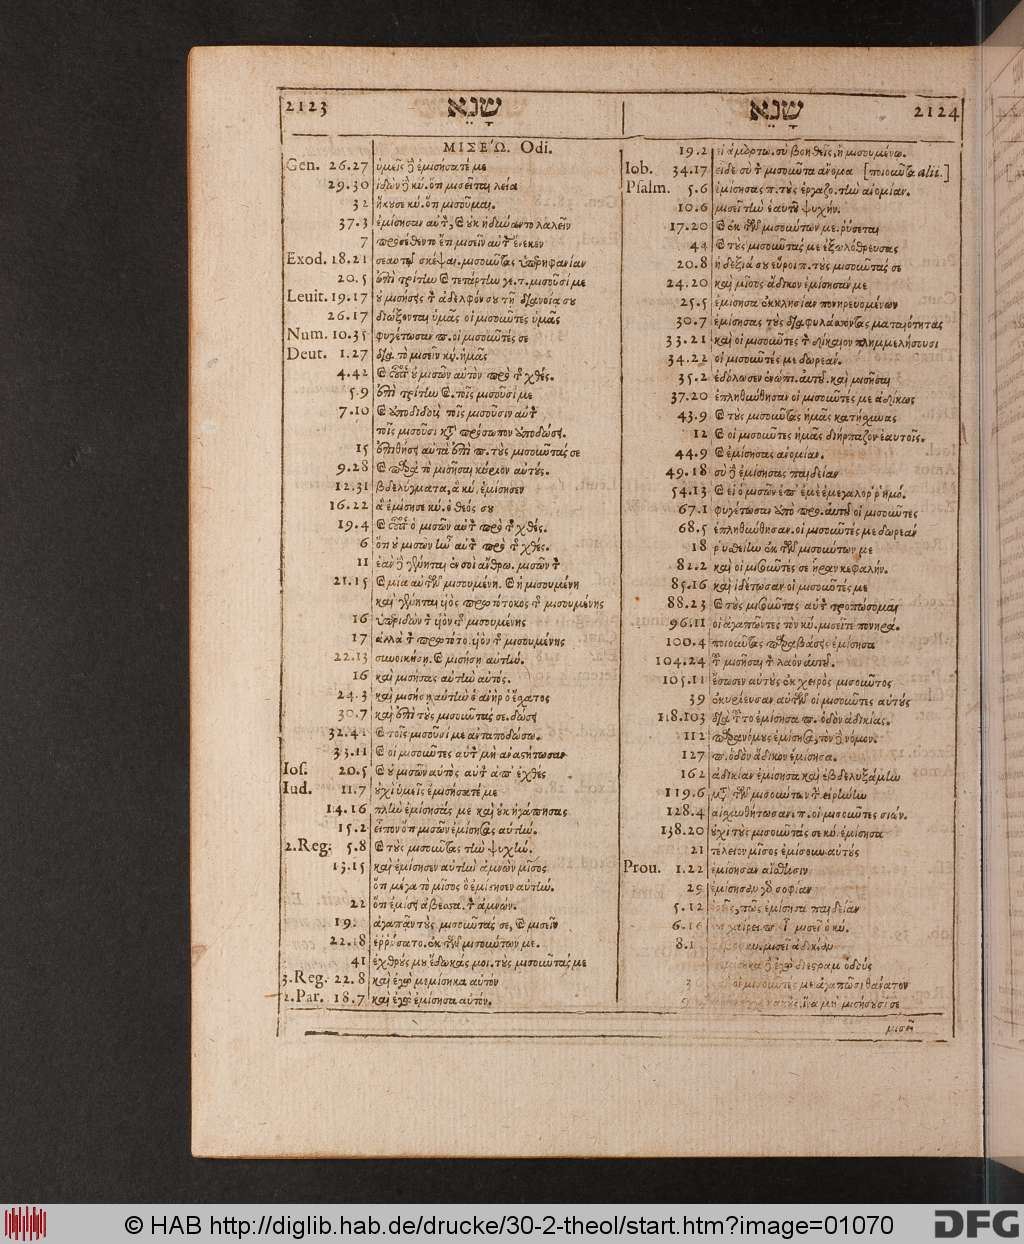 2123 שָׂנֵא
ΜΙΣΕΏ. Odi.
Gen. 26.27 ὑμεῖς ἢ ἐμισήσατέ με
29.30 ἰδὼν ἢ κύ. ὅτι μισεῖται λεία
32 ἤκουσε κύ. ὅτι μισοῦμαι.
37.3 ἐμίσησαν αὐτ, καὶ οὐκ ἠδύναντο λαλεῖν
7 προσέθεντο ἔτι μισεῖν αὐτ ἕνεκεν
Exod. 18.21 σεαυτῷ σκέψαι. μισοῦντας ὑπερηφανίαν
20.5 ἐπὶ τρίτην καὶ τετάρτην γε. τ. μισοῦσί με
Leuit. 19.17 οὐ μισήσεις τ ἀδελφόν σου τῇ διανοίᾳ σου
26.17 διώξονται ὑμᾶς οἱ μισοῦντες ὑμᾶς
Num. 10.35 φυγέτωσαν π. οἱ μισοῦντές σε
Deut. 1.27 διὰ τὸ μισεῖν κύ. ἡμᾶς
4.42 καὶ οὗτ οὐ μισῶν αὐτὸν πρὸ τ χθές.
5.9 ἐπὶ τρίτην καὶ. τοῖς μισοῦσί με
7.10 καὶ ἀποδιδοὺς τοῖς μισοῦσιν αὐτ
τοῖς μισοῦσι κτ πρόσωπον ἀποδώσει.
15 ἐπιθήσει αὐτὰ ἐπὶ π. τοὺς μισοῦντάς σε
9.28 καὶ παρὰ τὸ μισῆσαι κύριον αὐτούς.
12.31 βδελύγματα, ἃ κύ. ἐμίσησεν
16.22 ἃ ἐμίσησε κύ. ὁ θεός σου
19.4 καὶ οὗτ ὁ μισῶν αὐτ πρὸ τ χθές.
6 ὅτι οὐ μισῶν ἦν αὐτ πρὸ τ χθές.
11 ἐὰν ἢ γένηται ἐν σοὶ ἄνθρω. μισῶν τ
21.15 καὶ μία αὐτῶν μισουμένη. καὶ ἡ μισουμένη
καὶ γένηται υἱὸς πρωτότοκος τ μισουμένης
16 ὑπεριδὼν τ υἱὸν τ μισουμένης
17 ἀλλὰ τ πρωτότο. υἱὸν τ μισουμένης
22.13 συνοικήσῃ. καὶ μισήσῃ αὐτήν.
16 καὶ μισήσας αὐτὴν αὐτός.
24.3 καὶ μισήσῃ αὐτὴν ὁ ἀνὴρ ὁ ἔσχατος
30.7 καὶ ἐπὶ τοὺς μισοῦντάς σε. δώσει
32.41 καὶ τοῖς μισοῦσί με ἀνταποδώσω.
33.11 καὶ οἱ μισοῦντες αὐτ μὴ ἀναστήτωσαν
Ios. 20.5 καὶ οὐ μισῶν αὐτὸς αὐτ ἀπ' ἐχθὲς
Iud. 11.7 οὐχὶ ὑμεῖς ἐμισήσατέ με
14.16 πλὴν ἐμίσησάς με καὶ οὐκ ἠγάπησας
15.2 εἶπον ὅτι μισῶν ἐμίσησας αὐτήν.
2.Reg. 5.8 καὶ τοὺς μισοῦντας τὴν ψυχήν.
13.15 καὶ ἐμίσησεν αὐτὴν ἀμνὼν μῖσος
ὅτι μέγα τὸ μῖσος ὃ ἐμίσησεν αὐτήν.
22 ὅτι ἐμίσει ἀβεσσα. τ ἀμνών.
19. ἀγαπᾶν τοὺς μισοῦντάς σε, καὶ μισεῖν
22.18 ἐῤῥύσατο. ἐκ τῶν μισούντων με.
41 ἐχθρούς μου ἔδωκάς μοι. τοὺς μισοῦντάς με
3.Reg. 22.8 καὶ ἐγὼ μεμίσηκα αὐτόν
2.Par. 18.7 καὶ ἐγὼ ἐμίσησα αὐτόν.
שָׂנֵא 2124
19.2 εἰ ἁμαρτω. σὺ βοηθεῖς, ἢ μισουμένῳ.
Iob. 34.17 εἶδε σὺ τ μισοῦντα ἄνομα [ποιοῦντα alii.]
Psalm. 5.6 ἐμίσησας π. τοὺς ἐργαζο. τὴν ἀνομίαν.
10.6 μισεῖ τὴν ἑαυτοῦ ψυχήν.
17.20 καὶ ἐκ τῶν μισούντων με. ῥύσεται
44 καὶ τοὺς μισοῦντάς με ἐξωλόθρευσας
20.8 ἡ δεξιά σου εὕροι π. τοὺς μισοῦντάς σε
24.20 καὶ μῖσος ἄδικον ἐμίσησάν με
25.5 ἐμίσησα ἐκκλησίαν πονηρευομένων
30.7 ἐμίσησας τοὺς διαφυλάσσοντας ματαιότητας
33.21 καὶ οἱ μισοῦντες τ δίκαιον πλημμελήσουσι
34.22 οἱ μισοῦντές με δωρεάν.
35.2 ἐδόλωσεν ἐνώπι. αὐτοῦ. καὶ μισῆσαι
37.20 ἐπληθύνθησαν οἱ μισοῦντες με ἀδίκως
43.9 καὶ τοὺς μισοῦντας ἡμᾶς κατῄσχυνας
12 καὶ οἱ μισοῦντες ἡμᾶς διήρπαζον ἑαυτοῖς.
44.9 καὶ ἐμίσησας ἀνομίαν.
49.18 σὺ ἢ ἐμίσησας παιδείαν
54.13 καὶ εἰ ὁ μισῶν ἐπ' ἐμὲ ἐμεγαλοῤῥημό.
67.1 φυγέτωσαν ἀπὸ προ. αὐτοῦ οἱ μισοῦντες
68.5 ἐπληθύνθησαν. οἱ μισοῦντές με δωρεάν
18 ῥυσθείην ἐκ τῶν μισούντων με
82.2 καὶ οἱ μισοῦντες σε ἦραν κεφαλήν.
85.16 καὶ ἰδέτωσαν οἱ μισοῦντές με
88.23 καὶ τοὺς μισοῦντας αὐτ τροπώσομαι
96.11 οἱ ἀγαπῶντες τὸν κύ. μισεῖτε πονηρά.
100.4 ποιοῦντας παραβάσεις ἐμίσησα
104.24 τ μισῆσαι τ λαὸν αὐτοῦ.
105.11 ἔσωσεν αὐτοὺς ἐκ χειρὸς μισοῦντος
39 ἐκυρίευσαν αὐτῶν οἱ μισοῦντες αὐτούς
118.103 διὰ τοῦτο ἐμίσησα π. ὁδὸν ἀδικίας.
112 παρανόμους ἐμίσησα, τὸν ἢ νόμον.
127 π. ὁδὸν ἄδικον ἐμίσησα.
162 ἀδικίαν ἐμίσησα καὶ ἐβδελυξάμην
119.6 μτ τῶν μισούντων τ εἰρήνην
128.4 αἰσχυνθήτωσαν. π. οἱ μισοῦντες σιών.
138.20 οὐχὶ τοὺς μισοῦντάς σε κύ. ἐμίσησα
21 τέλειον μῖσος ἐμίσουν αὐτούς
Prou. 1.22 ἐμίσησαν αἴσθησιν
29 ἐμίσησαν γὰρ σοφίαν
5.12 πῶς ἐμίσησα παιδείαν
6.16 χαίρει π. μισεῖ ὁ κύ.
8.1 κύ. μισεῖ ἀδικίαν
ἢ ἐγὼ διεστραμ. ὁδούς
οἱ μισοῦντές με ἀγαπῶσι θάνατον
9 ἵνα μὴ μισήσωσί σε
μισεῖ
© HAB http://diglib.hab.de/drucke/30-2-theol/start.htm?image=01070
DFG